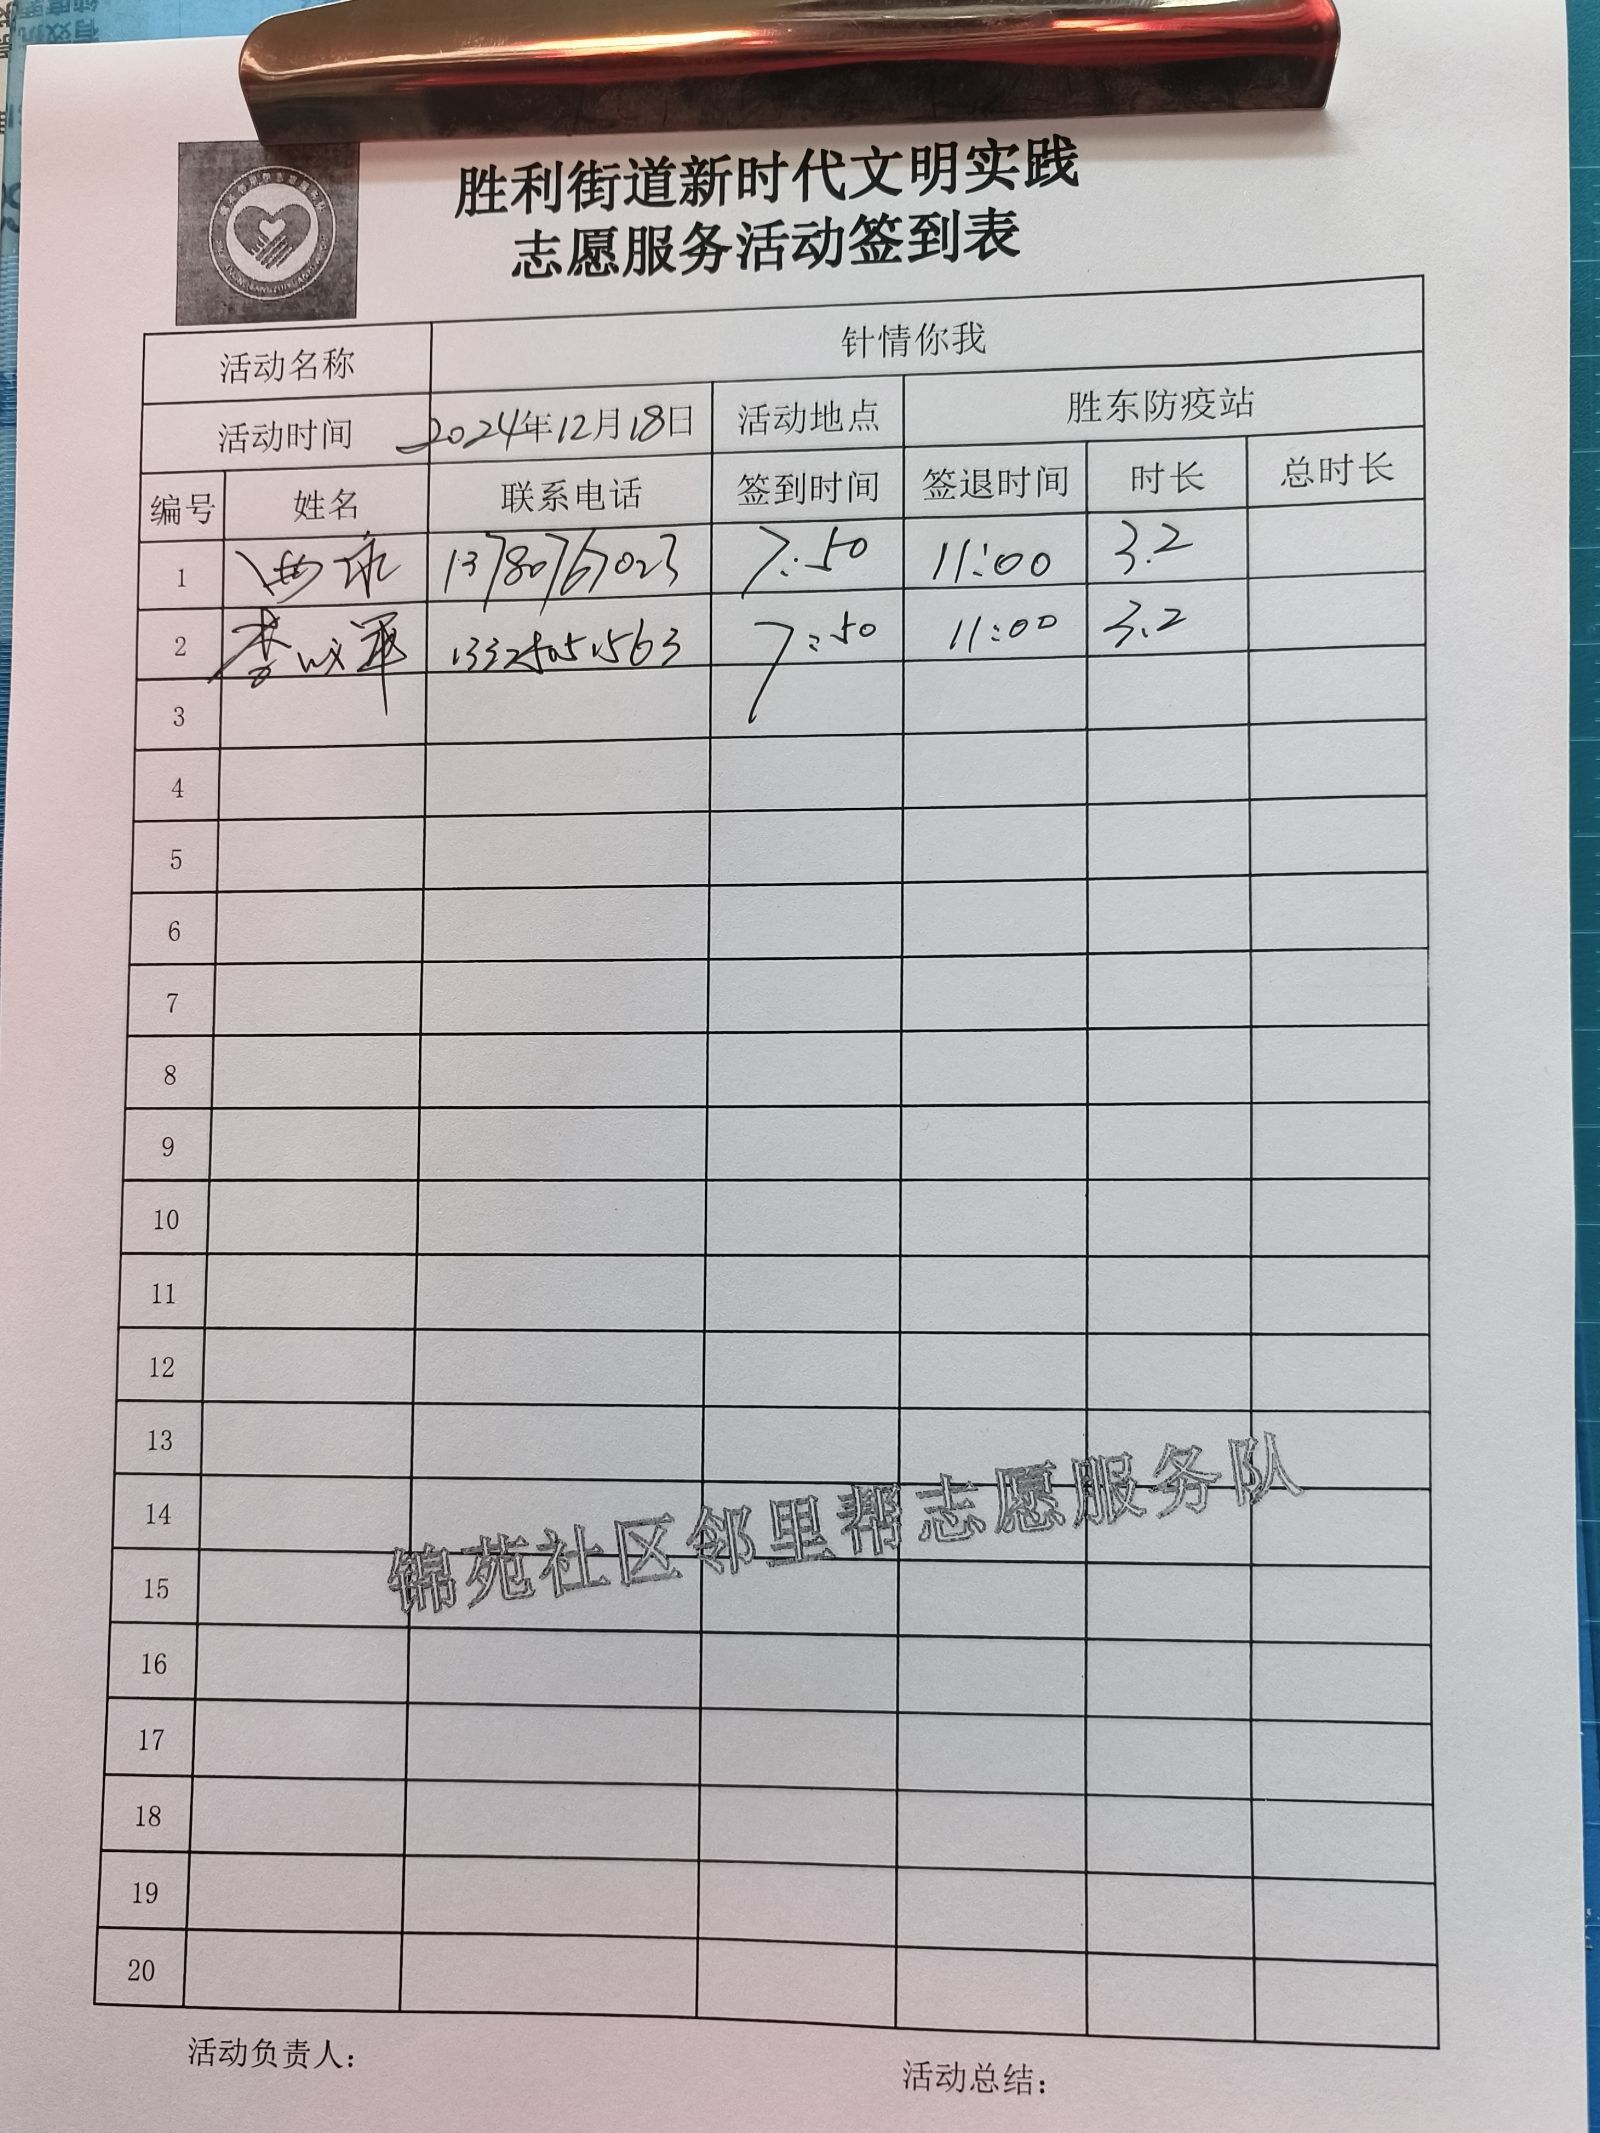 胜利街道新时代文明实践
志愿服务活动签到表
活动名称 针情你我
活动时间 2024年12月18日 活动地点 胜东防疫站
编号 姓名 联系电话 签到时间 签退时间 时长 总时长
1 13780767023 7:50 11:00 3.2
2 李 军 13325051563 7:50 11:00 3.2
3
4
5
6
7
8
9
10
11
12
13
14
锦苑社区邻里帮志愿服务队
15
16
17
18
19
20
活动负责人：
活动总结：